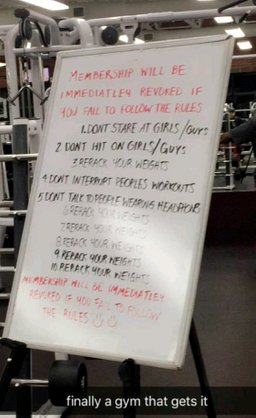 MEMBERSHIP WILL BE
IMMEDIATLEY REVOKED IF
YOU FAIL TO FOLLOW THE RULES
1.DONT STARE AT GIRLS/GUYS
2 DONT HIT ON GIRLS/GUYS
3 RERACK YOUR WEIGHTS
4 DONT INTERRUPT PEOPLES WORKOUTS
5 DONT TALK TO PEOPLE WEARING HEADPHONES
6 RERACK YOUR WEIGHTS
7 RERACK YOUR WEIGHTS
8 RERACK YOUR WEIGHTS
9 RERACK YOUR WEIGHTS
10 RERACK YOUR WEIGHTS
MEMBERSHIP WILL BE IMMEDIATLEY
REVOKED IF YOU FAIL TO FOLLOW
THE RULES
finally a gym that gets it